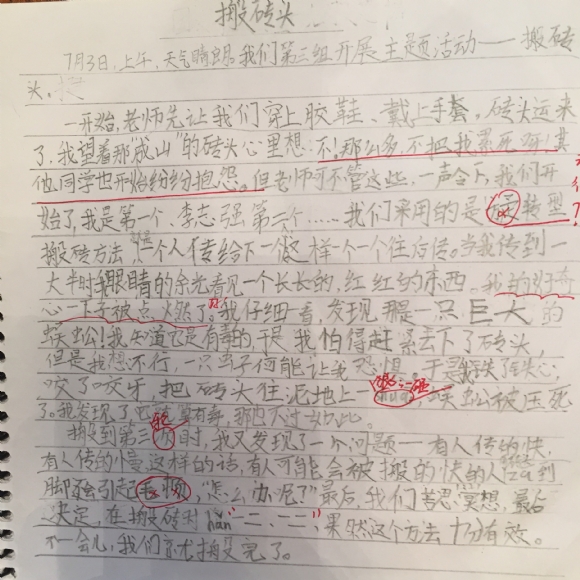 搬砖头
7月3日，上午，天气晴朗。我们第三组开展主题活动——搬砖
头。
一开始，老师先让我们穿上胶鞋、戴上手套。砖头运来
了，我望着那"成山"的砖头心里想：不！那么多，不把我累死呀！其
他同学也开始纷纷抱怨。但老师可不管这些，一声令下，我们开
始了，我是第一个、李志强第二个……我们采用的是"转型
搬砖方法，一个人传给下一个这样一个一个往后传。当我传到一
大半时我眼睛的余光看见一个长长的，红红的东西，我的好奇
心一下子被点燃了。我仔细一看，发现那是一只巨大的
蜈蚣！我知道它是有毒的于是我怕得赶紧丢下了砖头，
但是我想不行，一只虫子何能让我恐惧。于是我
咬了咬牙把砖头往泥地上一蜈蚣被压死
了。我发现了它虽有毒，那也不过如此。
搬到第三时，我又发现了一个问题——有人传的快，
有人传的慢这样的话，有人可能会被搬的快的人砸到
脚还会引起"怎么办呢？"最后，我们苦思冥想，最后
决定，在搬砖时hǎn"一二、一二"，果然这个方法十分有效。
不一会儿，我们就搬完了。